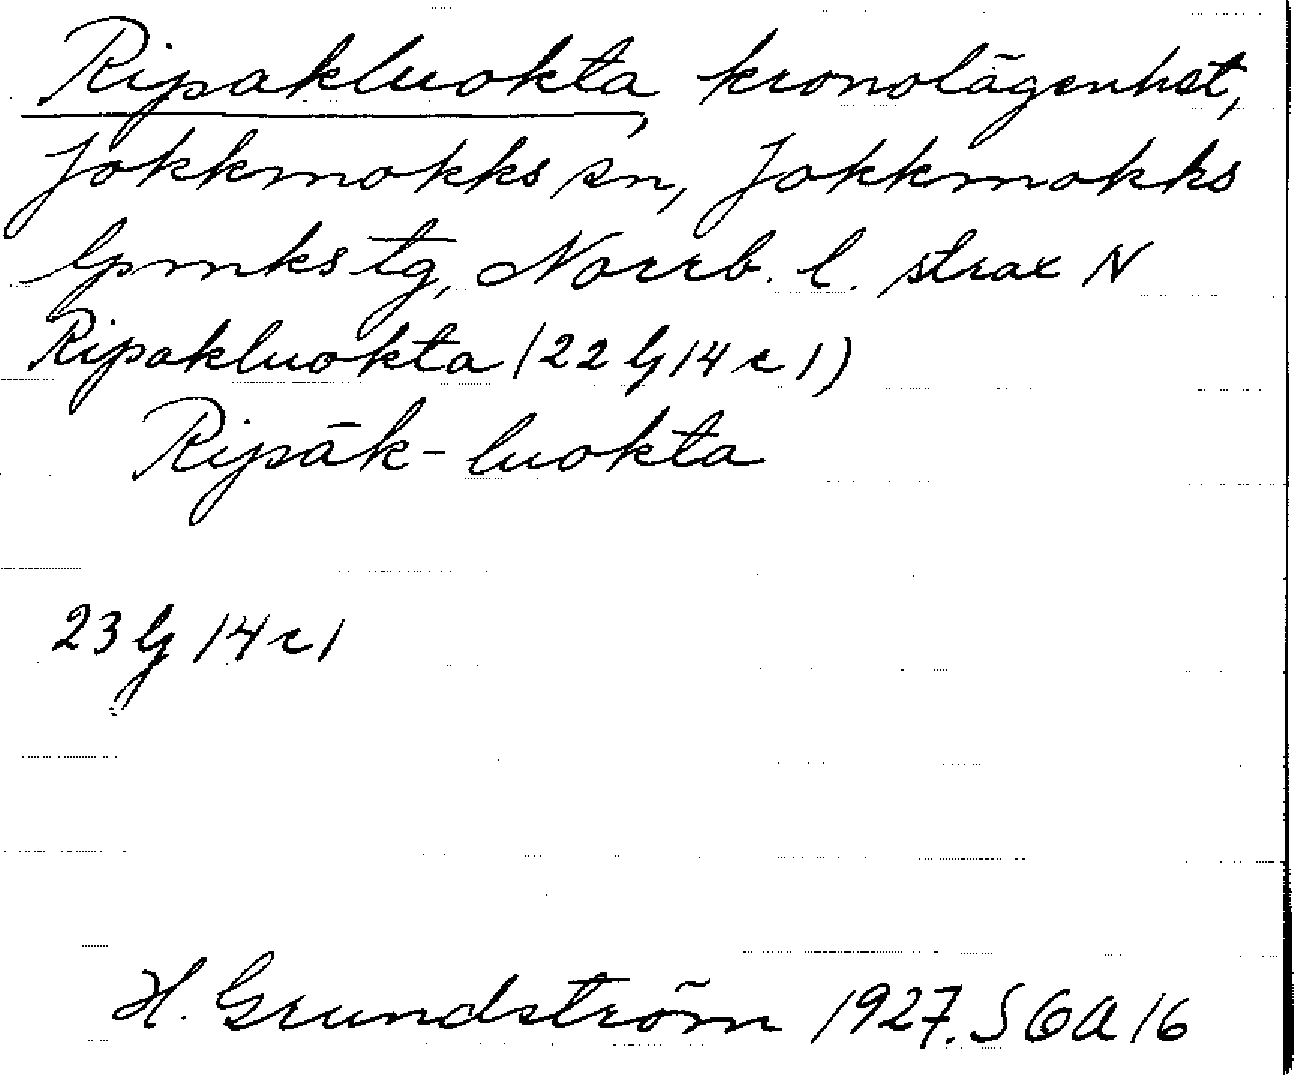 Ripakluokta, kronolägenhet,
Jokkmokks sn, Jokkmokks
lpmks tg, Norrb. l. strax N
Ripakluokta (22 G 14 c 1)
Ripāk-luokta
23 G 14 c 1
H. Grundström 1927. SOA 16